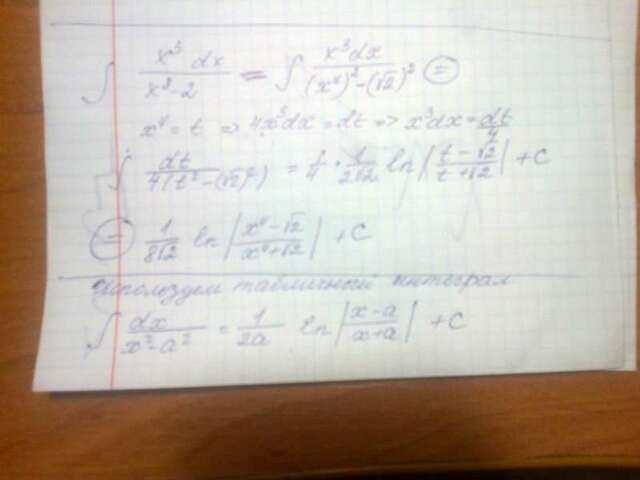 ∫ x³ dx / x⁸-2 = ∫ x³dx / (x⁴)²-(√2)² =
x⁴ = t ⇒ 4x³dx = dt ⇒ x³dx = dt/4
∫ dt / 4(t²-(√2)²) = 1/4 · 1/2√2 ln |t-√2 / t+√2| + C
= 1/8√2 ln |x⁴-√2 / x⁴+√2| + C
Используем табличный интеграл
∫ dx / x²-a² = 1/2a ln |x-a / x+a| + C